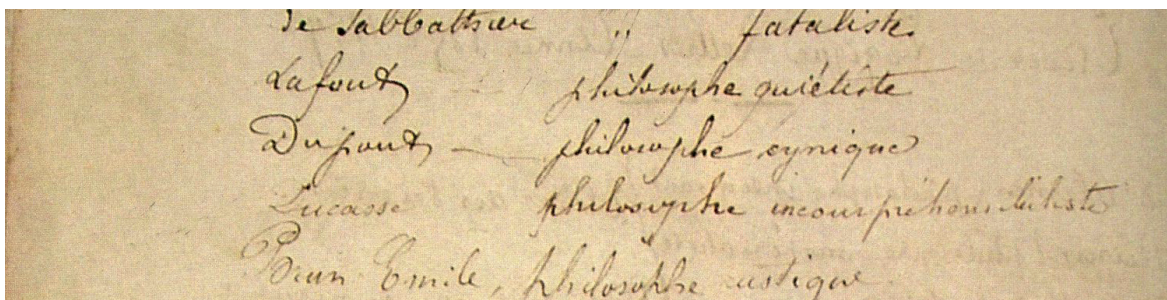 de Sabbathier " fataliste
Lafont philosophe quiétiste
Dupont — philosophe cynique
Lucasse philosophe incompréhensibiliste
Brun Emile, philosophe rustique